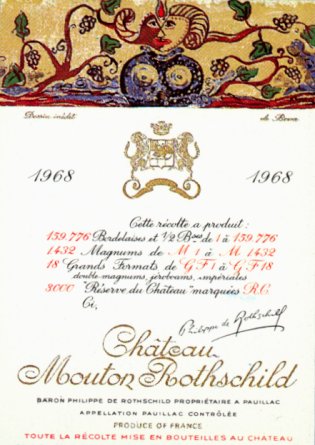 Dessin inédit de Bona
1968 1968
Cette récolte a produit :
159.776 Bordelaises et 1/2 Bses de 1 à 159.776
1432 Magnums de M 1 à M 1432
18 Grands Formats de G F 1 à G F 18
double magnums, jéroboams, impériales
3000 "Réserve du Château" marquées R.C.
Ci,
Philippe de Rothschild
Château
Mouton Rothschild
BARON PHILIPPE DE ROTHSCHILD PROPRIÉTAIRE A PAUILLAC
APPELLATION PAUILLAC CONTRÔLÉE
PRODUCE OF FRANCE
TOUTE LA RÉCOLTE MISE EN BOUTEILLES AU CHÂTEAU